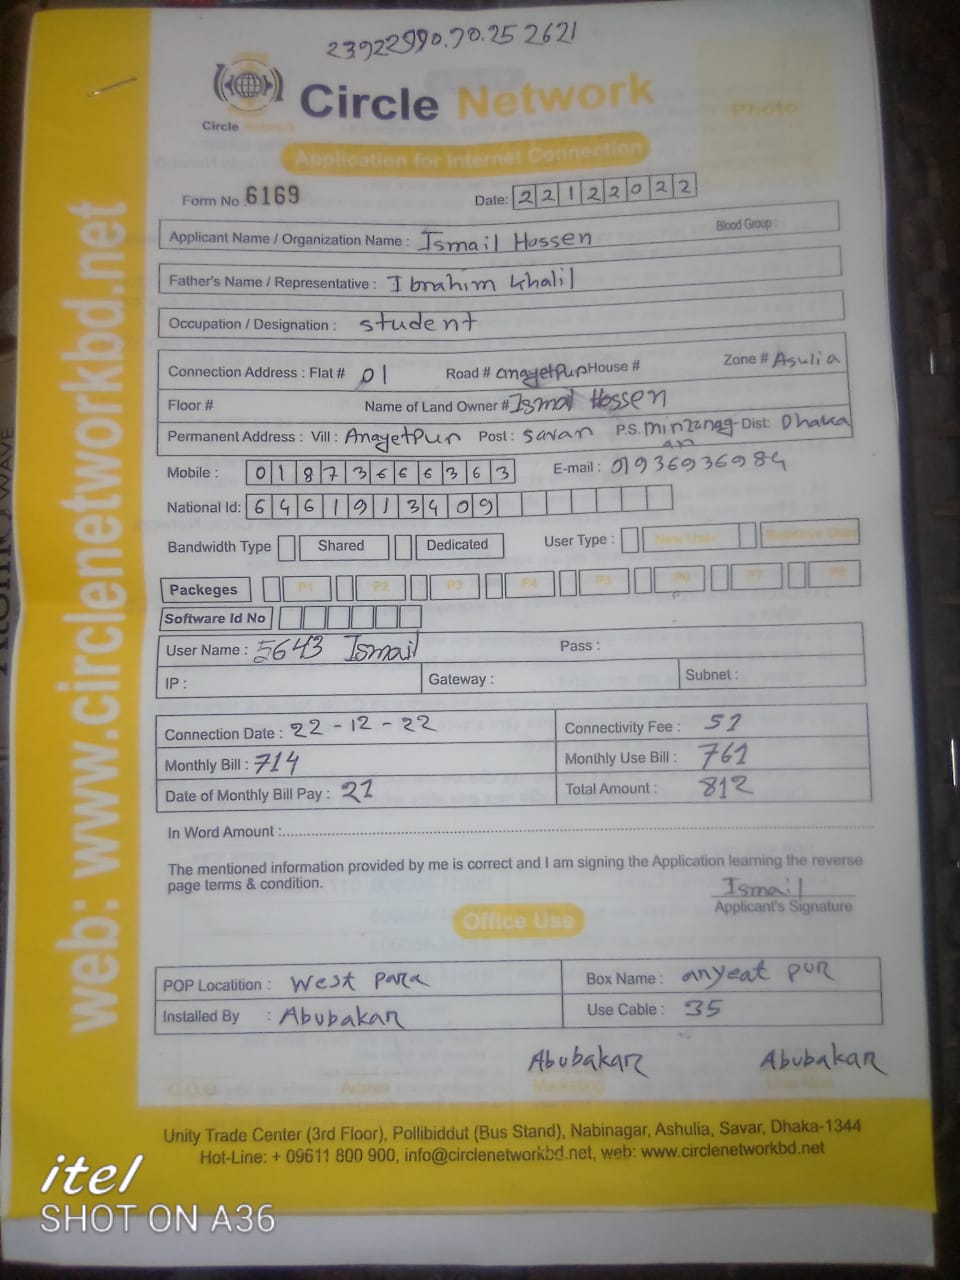 23922990.70.25 2621
Circle Network
Circle Network
Photo
Application for Internet Connection
Form No 6169 Date: 22122022
Applicant Name / Organization Name : Ismail Hossen Blood Group :
Father's Name / Representative : Ibrahim Khalil
Occupation / Designation : student
Connection Address : Flat # 01 Road # anayetpur House # Zone # Asulia
Floor # Name of Land Owner # Ismail Hossen
Permanent Address : Vill : Anayetpur Post : Savar P.S. Dist: Dhaka
Mobile : 01873666363 E-mail : 01936936984
National Id: 6461913409
Bandwidth Type Shared Dedicated User Type : New User
Packeges P1 P2 P3 P4 P5 P6 P7 P8
Software Id No
User Name : 5643 Ismail Pass :
IP : Gateway : Subnet :
Connection Date : 22-12-22 Connectivity Fee : 51
Monthly Bill : 714 Monthly Use Bill : 761
Date of Monthly Bill Pay : 21 Total Amount : 812
In Word Amount :
The mentioned information provided by me is correct and I am signing the Application learning the reverse
page terms & condition.
Ismail
Applicant's Signature
Office Use
POP Locatition : West para Box Name : anyeat pur
Installed By : Abubakar Use Cable : 35
Abubakar Abubakar
C.O.O Admin Marketing
Unity Trade Center (3rd Floor), Pollibiddut (Bus Stand), Nabinagar, Ashulia, Savar, Dhaka-1344
Hot-Line: + 09611 800 900, info@circlenetworkbd.net, web: www.circlenetworkbd.net
web: www.circlenetworkbd.net
itel
SHOT ON A36